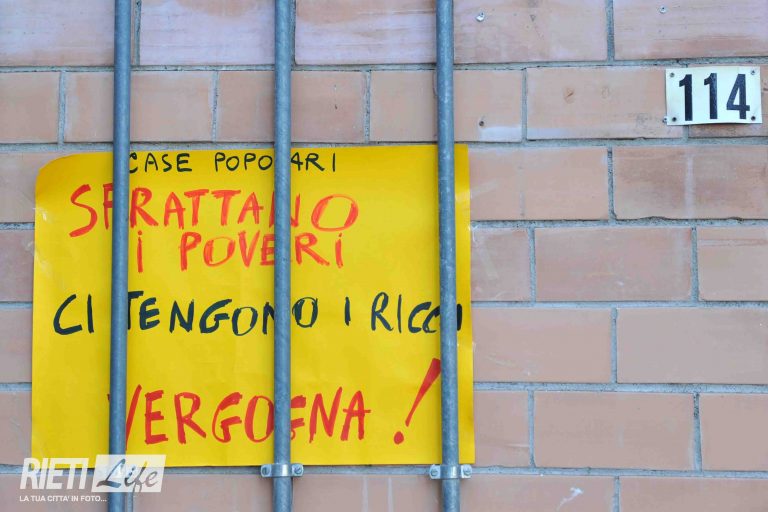 114
CASE POPOLARI
SFRATTANO
I POVERI
CI TENGONO I RICCHI
VERGOGNA!
RIETI Life
LA TUA CITTA' IN FOTO...